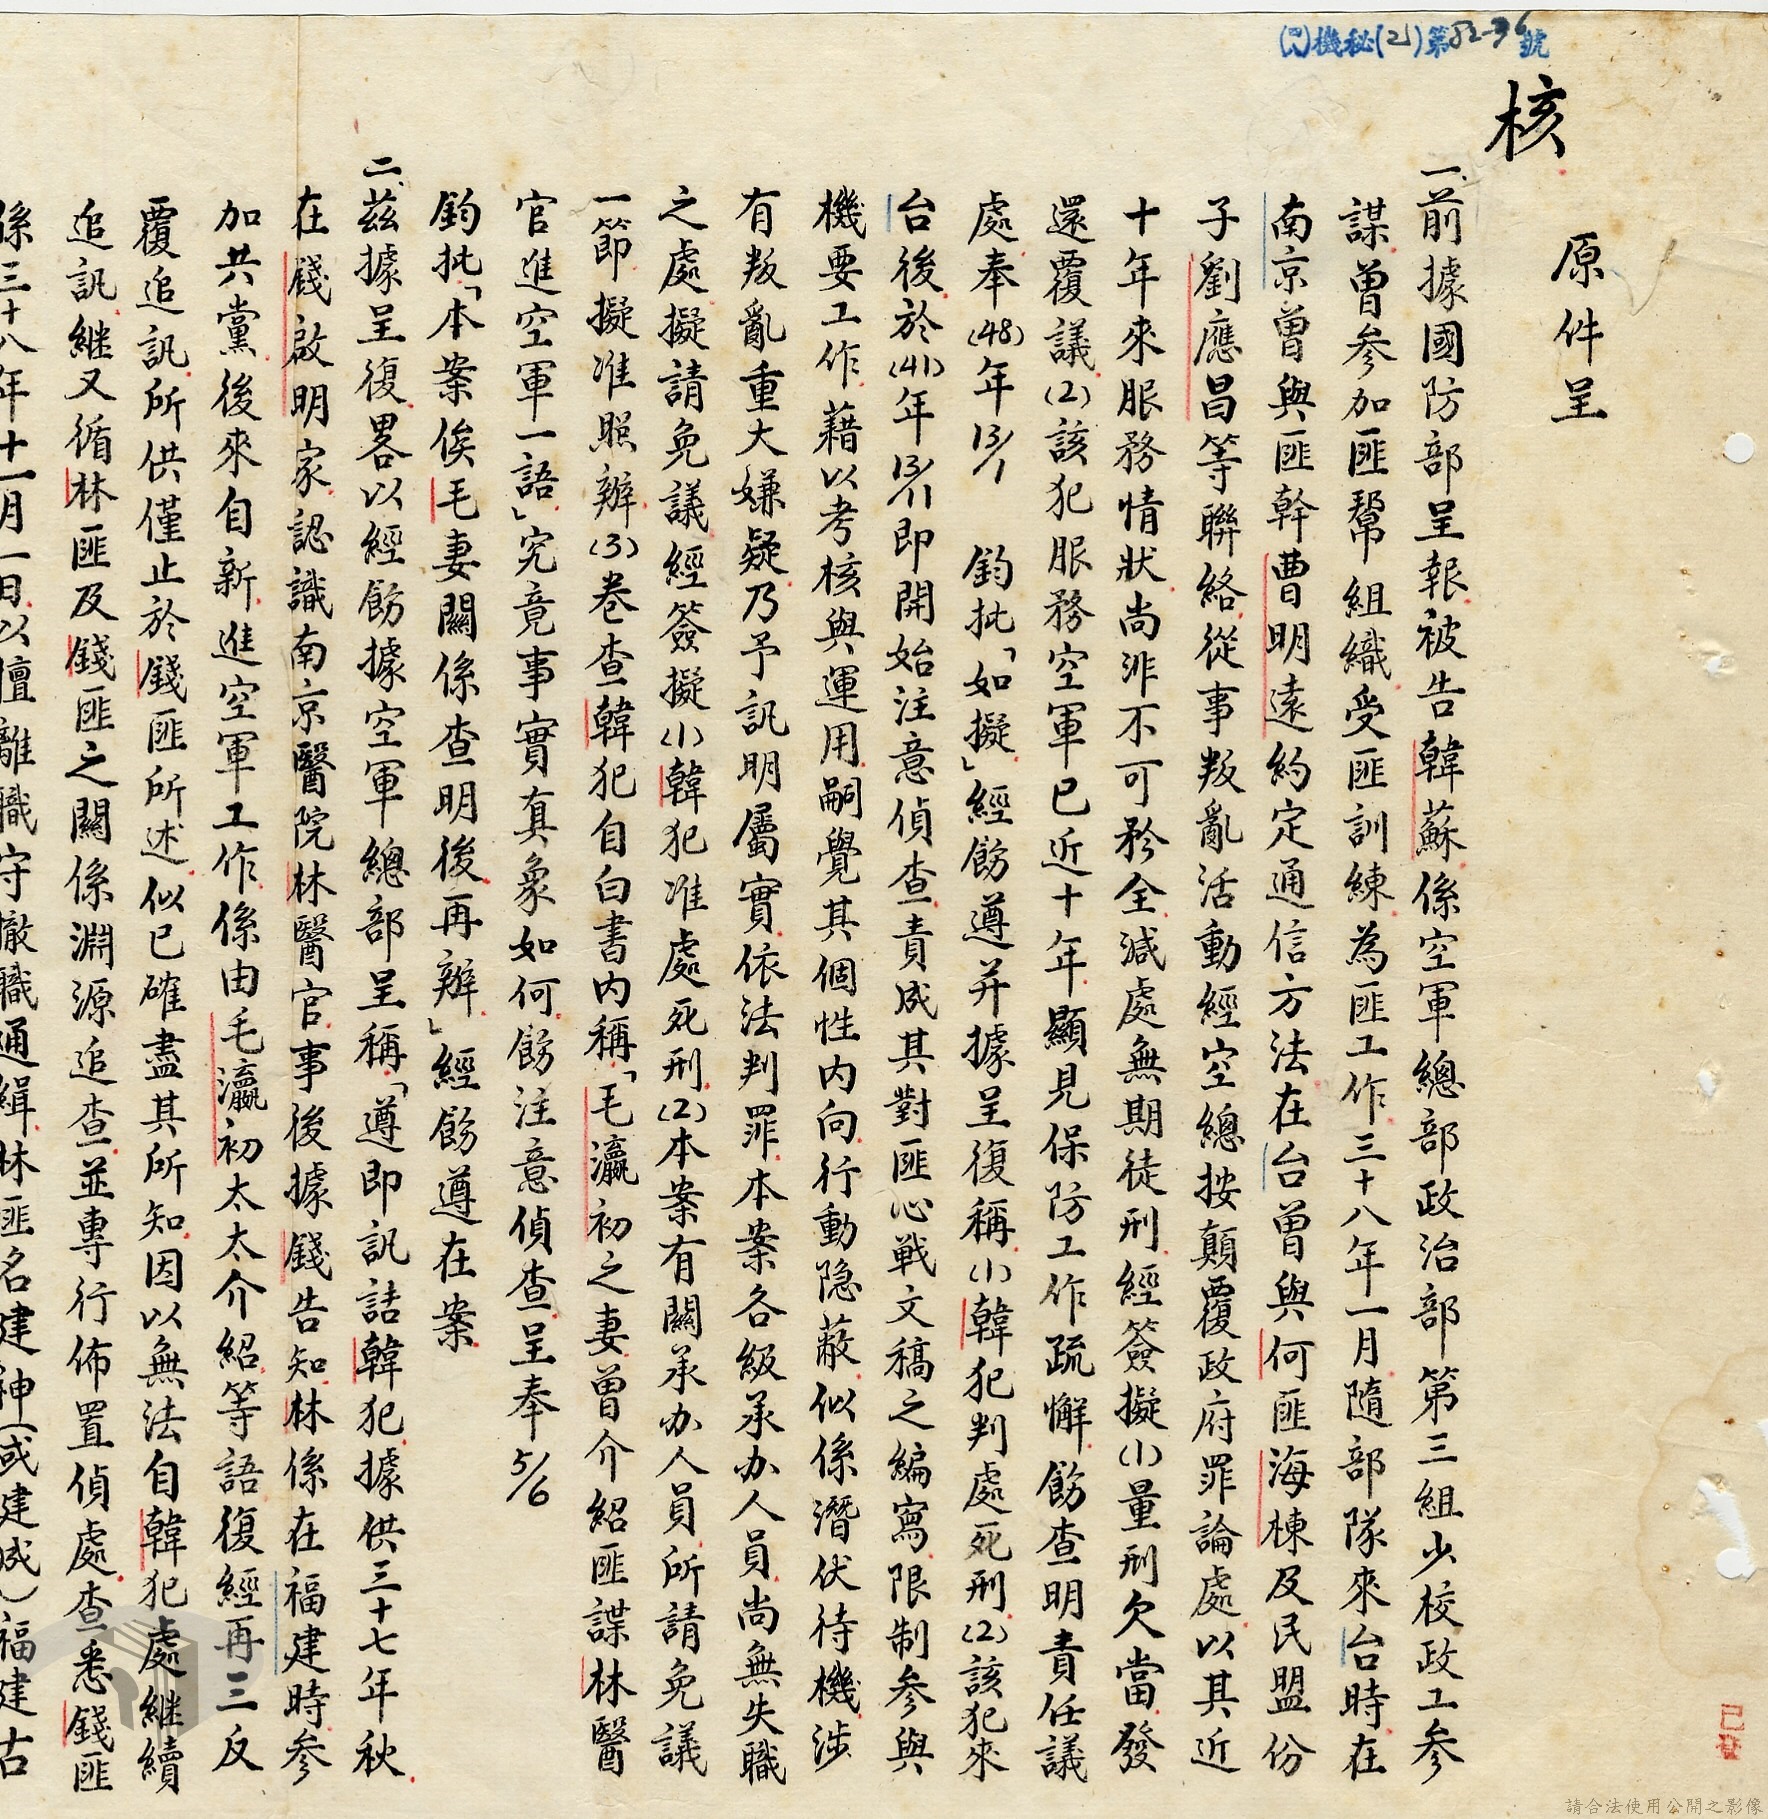 ㈣機秘(21)第82-36號
核
原件呈
一、前據國防部呈報被告韓蘇係空軍總部政治部第三組少校政工參
謀曾參加匪幫組織受匪訓練為匪工作三十八年一月隨部隊來台時在
南京曾與匪幹曹明遠約定通信方法在台曾與何匪海棟及民盟份
子劉應昌等聯絡從事叛亂活動經空總按顛覆政府罪論處以其近
十年來服務情狀尚非不可矜全減處無期徒刑經簽擬(1)量刑欠當發
還覆議(2)該犯服務空軍已近十年顯見保防工作疏懈飭查明責任議
處奉(48)年13/1 鈞批「如擬」經飭遵并據呈復稱(1)韓犯判處死刑(2)該犯來
台後於(41)年13/11即開始注意偵查責成其對匪心戰文稿之編寫限制參與
機要工作藉以考核與運用嗣覺其個性內向行動隐蔽似係潛伏待機涉
有叛亂重大嫌疑乃予訊明屬實依法判罪本案各級承办人員尚無失職
之處擬請免議經簽擬(1)韓犯准處死刑(2)本案有關承办人員所請免議
一節擬准照辦(3)卷查韓犯自白書內稱「毛瀛初之妻曾介紹匪諜林醫
官進空軍一語」究竟事實真象如何飭注意偵查呈奉5/6
鈞批「本案俟毛妻關係查明後再辦」經飭遵在案
二、茲據呈復畧以經飭據空軍總部呈稱「遵即訊詰韓犯據供三十七年秋
在錢啟明家認識南京醫院林醫官事後據錢告知林係在福建時參
加共黨後來自新進空軍工作係由毛瀛初太太介紹等語復經再三反
覆追訊所供僅止於錢匪所述似已確盡其所知因以無法自韓犯處継續
追訊継又循林匪及錢匪之關係淵源追查並專行佈置偵處查悉錢匪
係三十八年十一月一日以擅離職守撤職通緝林匪名建神(或建成)福建古
已登
請合法使用公開之影像